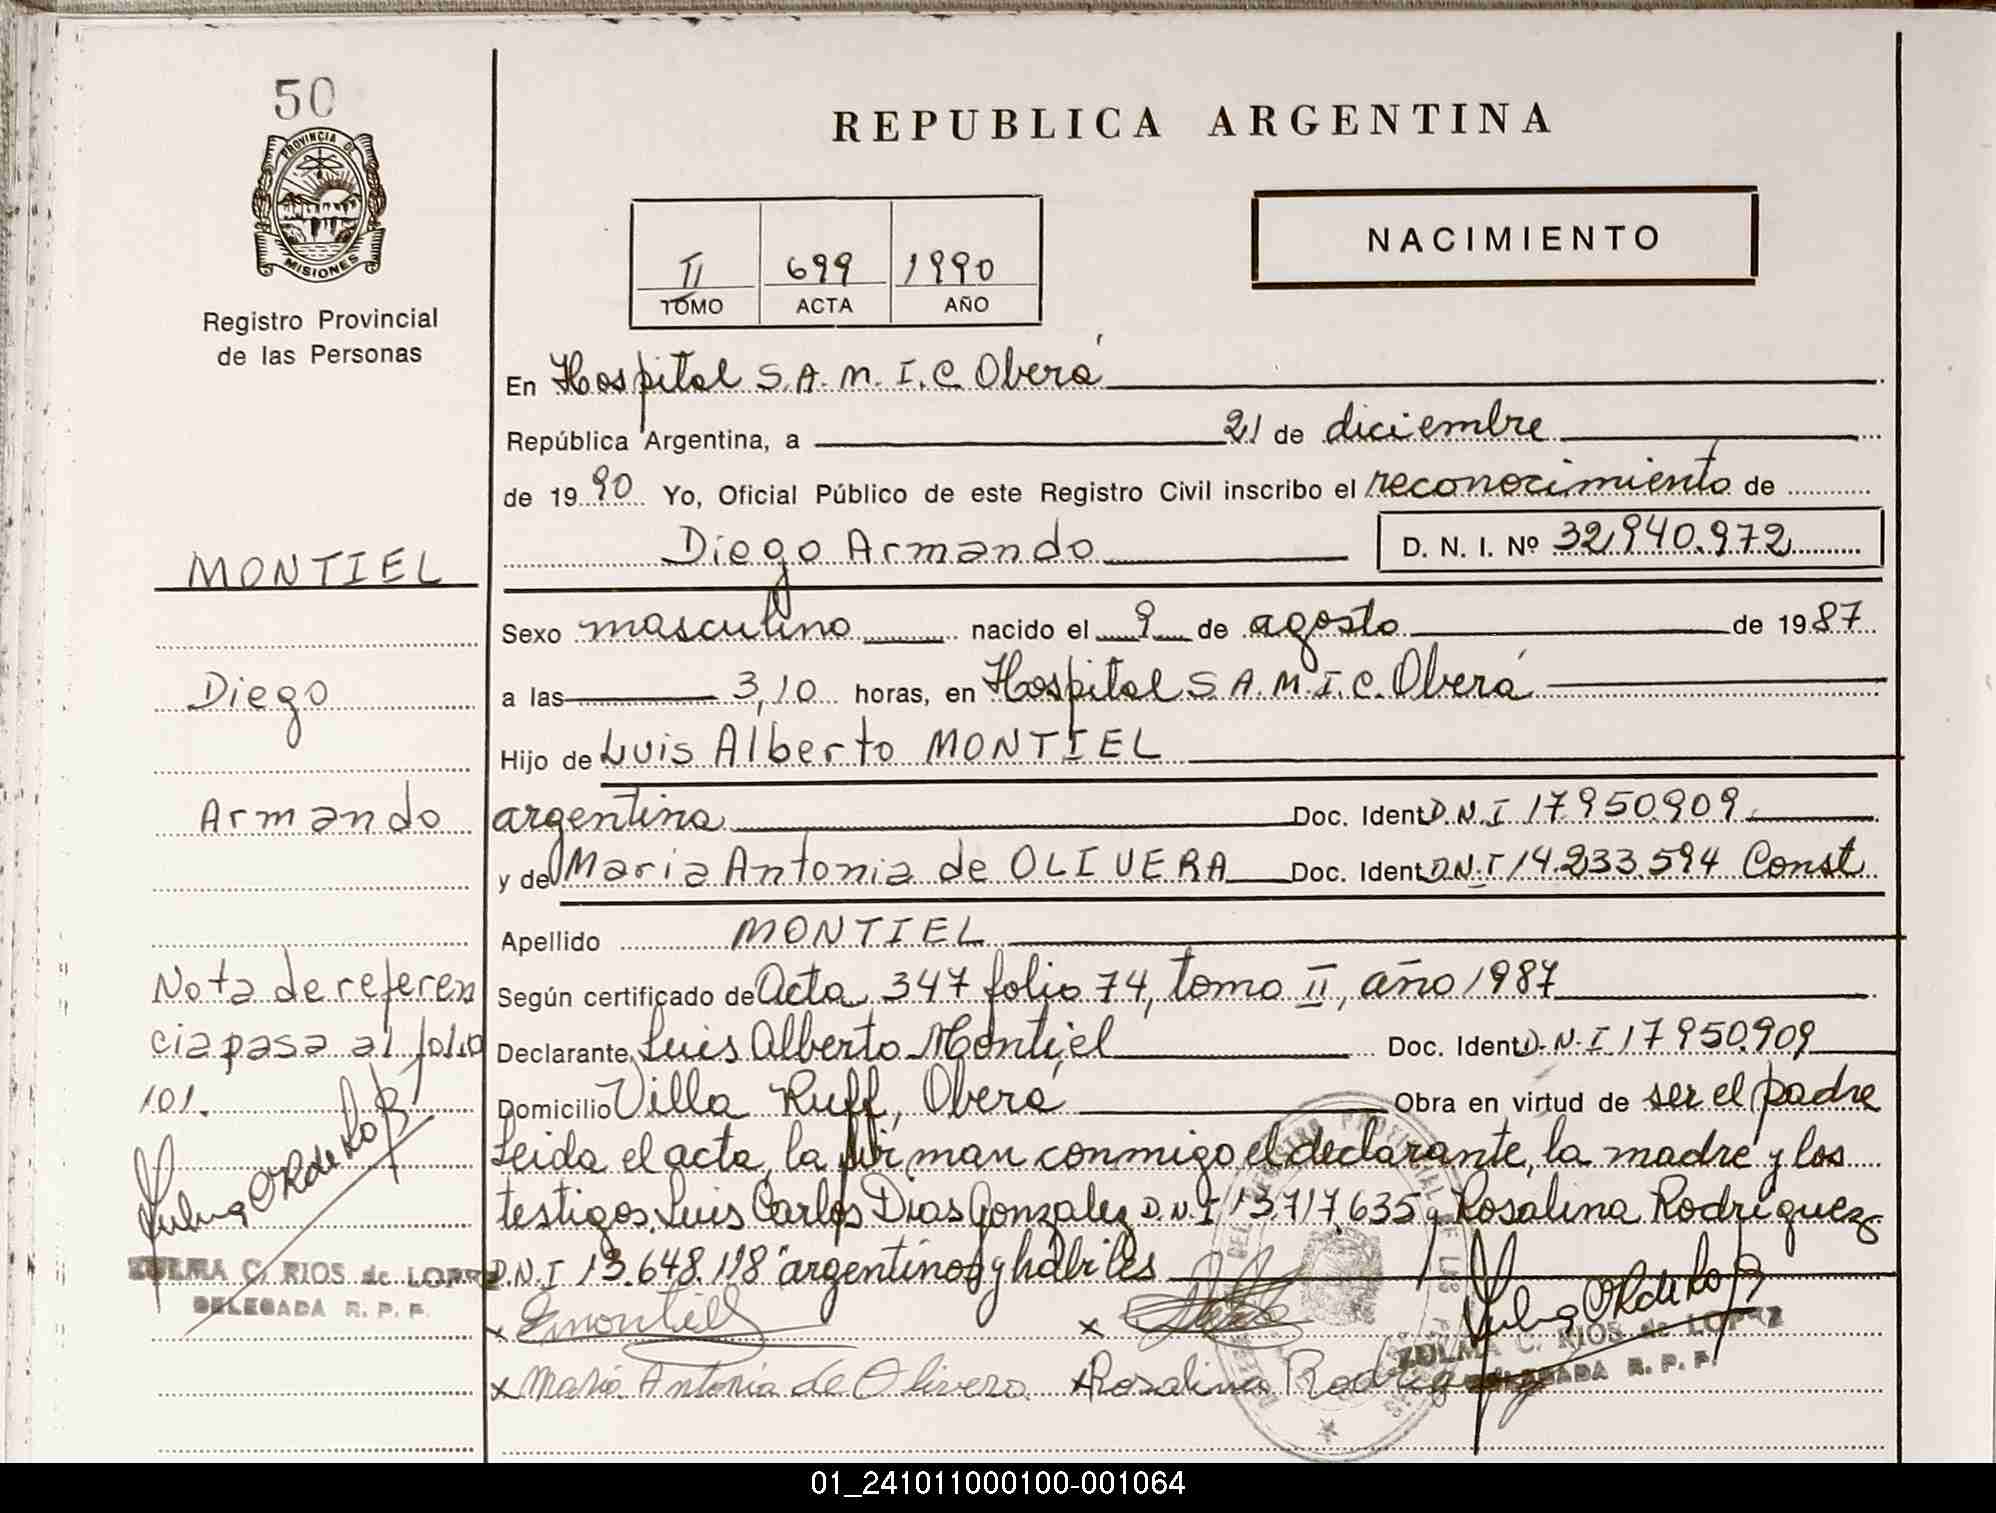 50
PROVINCIA DE
MISIONES
Registro Provincial
de las Personas
REPUBLICA ARGENTINA
II 699 1990
TOMO ACTA AÑO
NACIMIENTO
En Hospital S.A.M.I.C. Oberá
República Argentina, a 21 de diciembre
de 1990 Yo, Oficial Público de este Registro Civil inscribo el reconocimiento de
Diego Armando D. N. I. Nº 32.940.972
MONTIEL
Sexo masculino nacido el 9 de agosto de 1987
Diego
a las 3,10 horas, en Hospital S.A.M.I.C. Oberá
Hijo de Luis Alberto MONTIEL
Armando
argentina Doc. Ident D.N.I 17950909
y de Maria Antonia de OLIVERA Doc. Ident D.N.I 14.233.594 Const
Apellido MONTIEL
Nota de referen
cia pasa al folio
101.
Según certificado de Acta 347 folio 74, tomo II, año 1987
Declarante Luis Alberto Montiel Doc. Ident D.N.I 17950.909
Domicilio Villa Ruff, Oberá Obra en virtud de ser el padre
Leida el acta, la firman conmigo el declarante, la madre y los
testigos, Luis Carlos Dias Gonzalez D.N.I 13.717.635 y Rosalina Rodriguez
D.N.I 13.648.118 argentinos y hábiles
ZULMA C. RIOS de LOPEZ
DELEGADA R. P. P.
x x
ZULMA C. RIOS de LOPEZ
DELEGADA R. P. P.
x Maria Antonia de Olivera x Rosalina Rodriguez
01_241011000100-001064